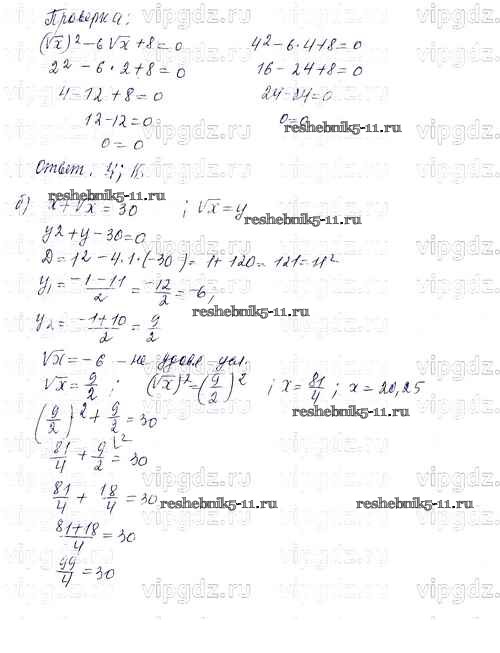 Проверка:
(√x)² - 6√x + 8 = 0    4² - 6·4 + 8 = 0
2² - 6·2 + 8 = 0    16 - 24 + 8 = 0
4 - 12 + 8 = 0    24 - 24 = 0
12 - 12 = 0    0 = 0
0 = 0
reshebnik5-11.ru
Ответ. 4;
reshebnik5-11.ru
б) x + √x = 30 ; √x = y
reshebnik5-11.ru
y2 + y - 30 = 0
D = 1² - 4·1·(-30) = 1 + 120 = 121 = 11²
y₁ = (-1-11)/2 = -12/2 = -6;
y₂ = (-1+10)/2 = 9/2
reshebnik5-11.ru
√x = -6 - не удовл. усл.
√x = 9/2 ; (√x)² = (9/2)² ; x = 81/4 ; x = 20,25
reshebnik5-11.ru
(9/2)² + 9/2 = 30
81/4 + 9/2 = 30
81/4 + 18/4 = 30
reshebnik5-11.ru reshebnik5-11.ru
(81+18)/4 = 30
99/4 = 30
vipgdz.ru